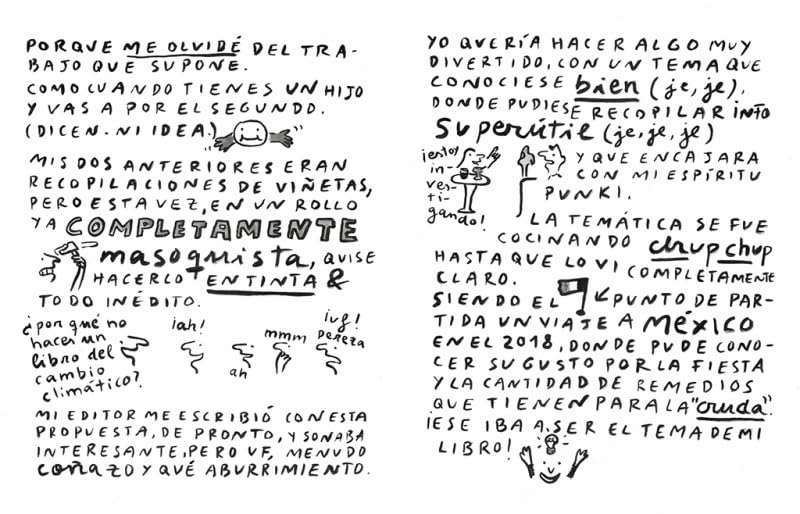 PORQUE ME OLVIDÉ DEL TRA-
BAJO QUE SUPONE.
COMO CUANDO TIENES UN HIJO
Y VAS A POR EL SEGUNDO.
(DICEN. NI IDEA.)
MIS DOS ANTERIORES ERAN
RECOPILACIONES DE VIÑETAS,
PERO ESTA VEZ, EN UN ROLLO
YA COMPLETAMENTE
masoquista, QUISE
HACERLO EN TINTA &
TODO INÉDITO.
¿por qué no
hacer un
libro del
cambio
climático?
¡ah!
ah
mmm
¡uf!
pereza
MI EDITOR ME ESCRIBIÓ CON ESTA
PROPUESTA, DE PRONTO, Y SONABA
INTERESANTE, PERO UF, MENUDO
coñazo Y QUÉ ABURRIMIENTO.
YO QUERÍA HACER ALGO MUY
DIVERTIDO, CON UN TEMA QUE
CONOCIESE bien (je, je),
DONDE PUDIESE RECOPILAR INFO
superútil (je, je, je)
¡estoy
in-
ves-
ti-
gando!
Y QUE ENCAJARA
CON MI ESPÍRITU
PUNKI.
LA TEMÁTICA SE FUE
COCINANDO chup chup
HASTA QUE LO VI COMPLETAMENTE
CLARO.
SIENDO EL PUNTO DE PAR-
TIDA UN VIAJE A MÉXICO
EN EL 2018, DONDE PUDE CONO-
CER SU GUSTO POR LA FIESTA
Y LA CANTIDAD DE REMEDIOS
QUE TIENEN PARA LA "cruda".
¡ESE IBA A SER EL TEMA DE MI
LIBRO!